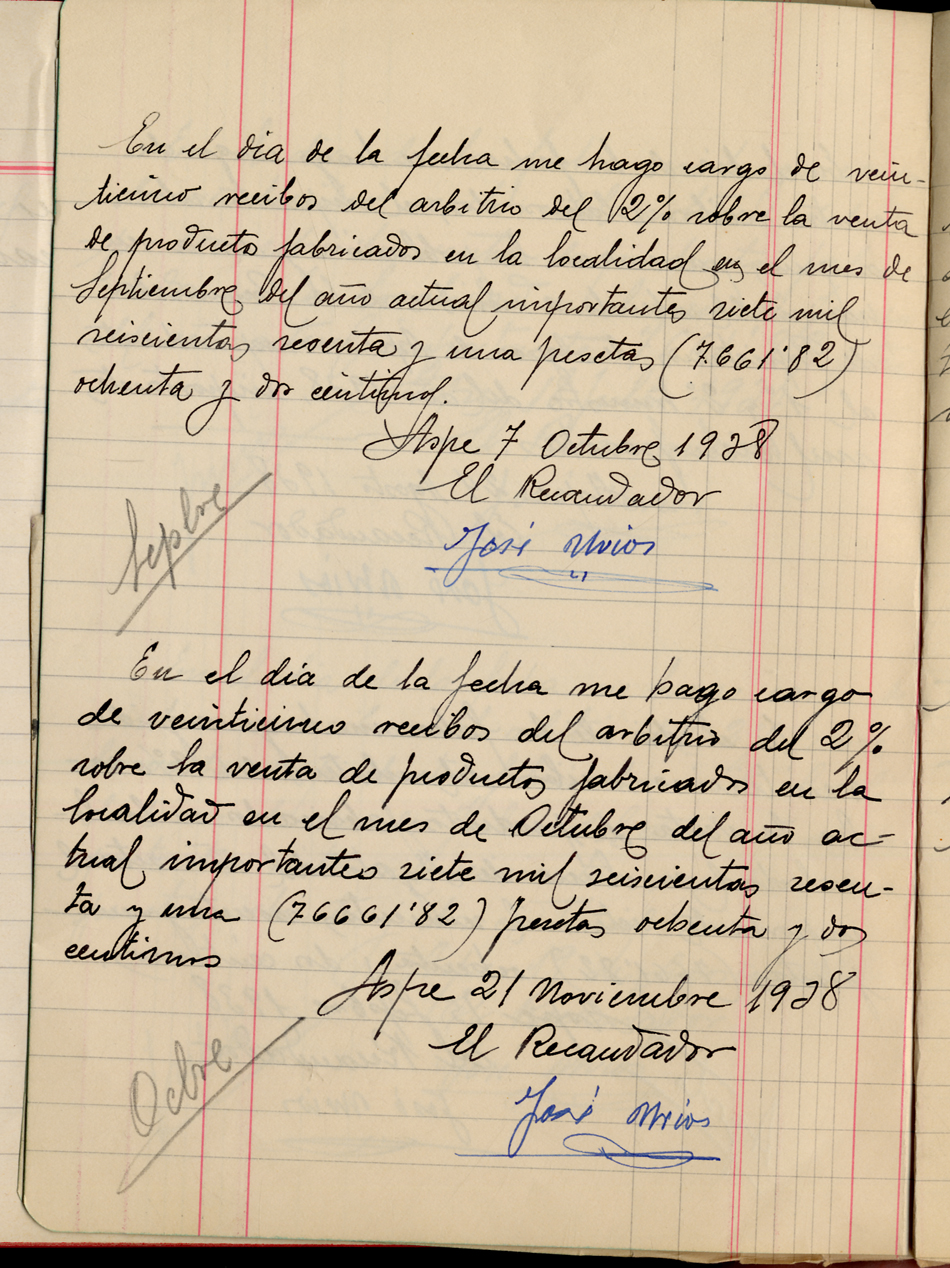 En el dia de la fecha me hago cargo de vein-
ticinco recibos del arbitrio del 2% sobre la venta
de productos fabricados en la localidad en el mes de
Septiembre del año actual importantes siete mil
seiscientas sesenta y una pesetas (7.661'82)
ochenta y dos centimos.
Aspe 7 Octubre 1938
El Recaudador
José Urios
Sepbre
En el dia de la fecha me hago cargo
de veinticinco recibos del arbitrio del 2%
sobre la venta de productos fabricados en la
localidad en el mes de Octubre del año ac-
tual importantes siete mil seiscientas sesen-
ta y una (76661'82) pesetas ochenta y dos
centimos
Aspe 21 Noviembre 1938
El Recaudador
José Urios
Ocbre